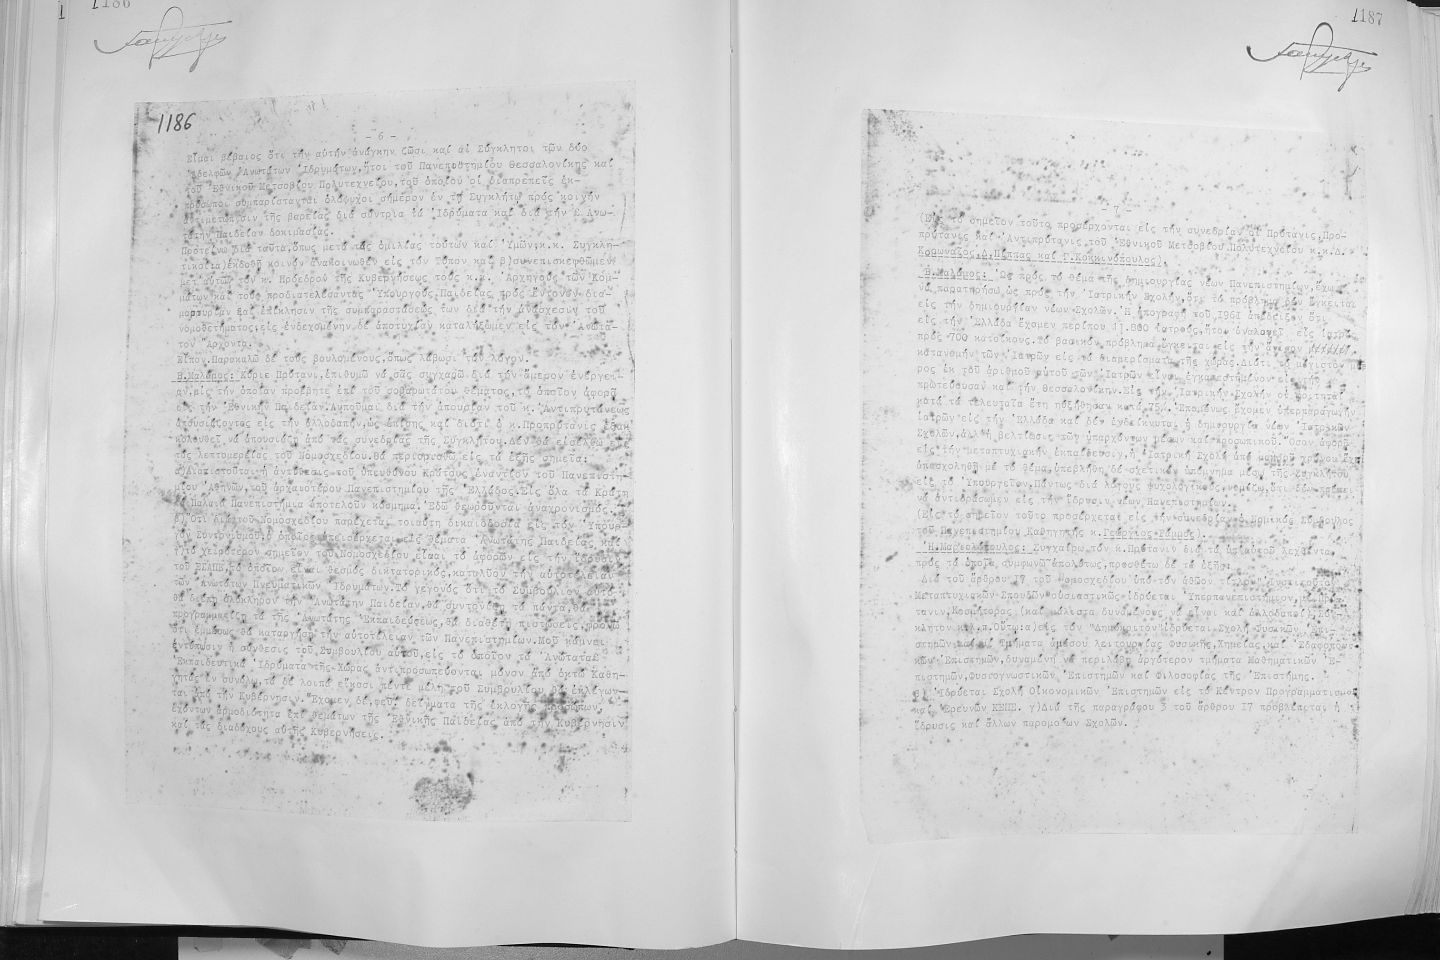 1186
1187
1186
- 6 -
Εἶμαι βέβαιος ὅτι τήν αὐτήν ἀνάγκην ζῶσι καί αἱ Σύγκλητοι τῶν δύο
ἀδελφῶν Ἀνωτάτων Ἱδρυμάτων, ἤτοι τοῦ Πανεπιστημίου Θεσσαλονίκης καί
τοῦ Ἐθνικοῦ Μετσοβίου Πολυτεχνείου, τοῦ ὁποίου οἱ διαπρεπεῖς ἐκ-
πρόσωποι συμπαρίστανται ὁλόψυχοι σήμερον ἐν τῇ Συγκλήτῳ πρός κοινήν
ἀντιμετώπισιν τῆς βαρείας διά τά Ἱδρύματα καί διά τήν Ἀνω-
τάτην Παιδείαν δοκιμασίας.
Προτείνω διά ταῦτα, ὅπως μετά τάς ὁμιλίας τούτων καί Ὑμῶν κ.κ. Συγκλη-
τικοί: α) ἐκδοθῇ κοινόν ἀνακοινωθέν εἰς τόν Τύπον καί β) συνεπισκεφθῶμεν
μετ' αὐτῶν τόν κ. Πρόεδρον τῆς Κυβερνήσεως τούς κ.κ. Ἀρχηγούς τῶν Κομ-
μάτων καί τούς προδιατελέσαντας Ὑπουργούς Παιδείας πρός ἔντονον δια-
μαρτυρίαν καί ἐπίκλησιν τῆς συμπαραστάσεώς των διά τήν ἀνάσχεσιν τοῦ
νομοθετήματος, εἰς ἐνδεχομένην δέ ἀποτυχίαν καταλήξωμεν εἰς τόν Ἀνώτα-
τον Ἄρχοντα.
Εἶπον. Παρακαλῶ δέ τούς βουλομένους, ὅπως λάβωσι τόν λόγον.
Β.Μαλάμος: Κύριε Πρύτανι, ἐπιθυμῶ νά σᾶς συγχαρῶ διά τήν ἄμεσον ἐνέργει-
αν, εἰς τήν ὁποίαν προέβητε ἐπί τοῦ σοβαρωτάτου θέματος, τό ὁποῖον ἀφορᾷ
εἰς τήν Ἐθνικήν Παιδείαν. Λυποῦμαι διά τήν ἀπουσίαν τοῦ κ. Ἀντιπρυτάνεως
ἀπουσιάζοντος εἰς τήν ἀλλοδαπήν, ὡς ἐπίσης καί διότι ὁ κ. Προπρύτανις ἐξακ
κολουθεῖ νά ἀπουσιάζῃ ἀπό τάς συνεδρίας τῆς Συγκλήτου. Δέν θά εἰσέλθω εἰς
τάς λεπτομερείας τοῦ Νομοσχεδίου. Θά περιορισθῶ εἰς τά ἑξῆς σημεῖα:
α) Διαπιστοῦται ἡ ἀντίθεσις τοῦ ὑπευθύνου Κράτους ἔναντίον τοῦ Πανεπιστη-
μίου Ἀθηνῶν, τοῦ ἀρχαιοτέρου Πανεπιστημίου τῆς Ἑλλάδος. Εἰς ὅλα τά Κράτη
τά Παλαιά Πανεπιστήμια ἀποτελοῦν κόσμημα. Ἐδῶ θεωροῦνται ἀναχρονισμός.
β) Ὅτι διά τοῦ Νομοσχεδίου παρέχεται τοιαύτη δικαιοδοσία εἰς τόν Ὑπουρ-
γόν Συντονισμοῦ, ὁ ὁποῖος ὑπεισέρχεται εἰς θέματα Ἀνωτάτης Παιδείας καί
γ) τό χειρότερον σημεῖον τοῦ Νομοσχεδίου εἶναι τό ἀφορῶν εἰς τήν ἵδρυσιν
τοῦ ΕΣΑΠΕ, τό ὁποῖον εἶναι θεσμός δικτατορικός, καταλῦον τήν αὐτοτέλειαν
τῶν Ἀνωτάτων Πνευματικῶν Ἱδρυμάτων. Τό γεγονός ὅτι τό Συμβούλιον αὐτό
θά διέπῃ ὁλόκληρον τήν Ἀνωτάτην Παιδείαν, θά συντονίζῃ τά πάντα, θά
προγραμματίζῃ τά τῆς Ἀνωτάτης Ἐκπαιδεύσεως, θά διαθέτῃ πιστώσεις, φρονῶ
ὅτι ἐμμέσως θά καταργήσῃ τήν αὐτοτέλειαν τῶν Πανεπιστημίων. Μοῦ κάμνει
ἐντύπωσιν ἡ σύνθεσις τοῦ Συμβουλίου αὐτοῦ, εἰς τό ὁποῖον τά Ἀνώτατα
Ἐκπαιδευτικά Ἱδρύματα τῆς Χώρας ἀντιπροσωπεύονται μόνον ἀπό ὀκτώ Καθη-
γητάς ἐν συνόλῳ, τά δέ λοιπά εἴκοσι πέντε μέλη τοῦ Συμβουλίου θά ἐκλέγων-
ται ἀπό τήν Κυβέρνησιν. Ἔχομεν δέ, φεῦ, δείγματα τῆς ἐκλογῆς προσώπων,
ἐχόντων ἁρμοδιότητα ἐπί θεμάτων τῆς Ἐθνικῆς Παιδείας ἀπό τήν Κυβέρνησιν
καί τάς διαδόχους αὐτῆς Κυβερνήσεις.
- 7 -
(Εἰς τό σημεῖον τοῦτο προσέρχονται εἰς τήν συνεδρίαν οἱ Πρύτανις, Προ-
πρύτανις καί Ἀντιπρύτανις τοῦ Ἐθνικοῦ Μετσοβίου Πολυτεχνείου κ.κ. Δ.
Κορωναῖος, Α. Πάππας καί Τ. Κοκκινόπουλος).
Β.Μαλάμος: Ὡς πρός τό θέμα τῆς δημιουργίας νέων Πανεπιστημίων, ἔχω
νά παρατηρήσω ὡς πρός τήν Ἰατρικήν Σχολήν, ὅτι τό πρόβλημα δέν ἔγκειται
εἰς τήν δημιουργίαν νέων Σχολῶν. Ἡ ἀπογραφή τοῦ 1961 ἀπέδειξεν ὅτι
εἰς τήν Ἑλλάδα ἔχομεν περίπου 11.800 ἰατρούς, ἤτοι ἀναλογεῖ εἷς ἰατρός
πρός 700 κατοίκους. Τό βασικόν πρόβλημα ἔγκειται εἰς τήν ἄνισον
κατανομήν τῶν Ἰατρῶν εἰς τά διαμερίσματα τῆς χώρας. Διότι τό μέγιστον μέ-
ρος ἐκ τοῦ ἀριθμοῦ αὐτοῦ τῶν Ἰατρῶν εἶναι ἐγκατεστημένον εἰς τήν
πρωτεύουσαν καί τήν Θεσσαλονίκην. Εἰς τήν Ἰατρικήν Σχολήν οἱ φοιτηταί
κατά τά τελευταῖα ἔτη ηὐξήθησαν κατά 75%. Ἑπομένως ἔχομεν ὑπερπαραγωγήν
ἰατρῶν εἰς τήν Ἑλλάδα καί δέν ἐνδείκνυται ἡ δημιουργία νέων Ἰατρικῶν
Σχολῶν, ἀλλ' ἡ βελτίωσις τῶν ὑπαρχόντων μέσων καί προσωπικοῦ. Ὅσον ἀφορᾷ
εἰς τήν μεταπτυχιακήν ἐκπαίδευσιν, ἡ Ἰατρική Σχολή ἀπό μακροῦ χρόνου ἔχει
ἀπασχοληθῆ μέ τό θέμα, ὑπεβλήθη δέ σχετικόν ὑπόμνημα μέσῳ τῆς Συγκλήτου
εἰς τό Ὑπουργεῖον. Πάντως διά λόγους ψυχολογικούς νομίζω, ὅτι δέν πρέπει
νά ἀντιδράσωμεν εἰς τήν ἵδρυσιν νέων Πανεπιστημίων.
(Εἰς τό σημεῖον τοῦτο προσέρχεται εἰς τήν συνεδρίαν ὁ Νομικός Σύμβουλος
τοῦ Πανεπιστημίου Καθηγητής κ. Γεώργιος Ράμμος).
Η.Μαριολόπουλος: Συγχαίρω τόν κ. Πρύτανιν διά τά ὑπ' αὐτοῦ λεχθέντα,
πρός τά ὁποῖα συμφωνῶ ἀπολύτως, προσθέτω δέ τά ἑξῆς:
Διά τοῦ ἄρθρου 17 τοῦ Νομοσχεδίου ὑπό τόν ἀθῶον τίτλον Ἰνστιτοῦτον
Μεταπτυχιακῶν Σπουδῶν οὐσιαστικῶς ἱδρύεται Ὑπερπανεπιστήμιον, μέ Πρύ-
τανιν, Κοσμήτορας (καί μάλιστα δυναμένους νά εἶναι καί ἀλλοδαποί), Σύγ-
κλητον κ.λ.π. Οὕτω: α) εἰς τόν "Δημόκριτον" ἱδρύεται Σχολή Φυσικῶν Ἐπι-
στημῶν μέ τμήματα ἀμέσου λειτουργίας Φυσικῆς, Χημείας καί Ἐδαφολογι-
κῶν Ἐπιστημῶν, δυναμένη νά περιλάβῃ ἀργότερον τμήματα Μαθηματικῶν Ἐ-
πιστημῶν, Φυσιογνωστικῶν Ἐπιστημῶν καί Φιλοσοφίας τῆς Ἐπιστήμης.
β) Ἱδρύεται Σχολή Οἰκονομικῶν Ἐπιστημῶν εἰς τό Κέντρον Προγραμματισμοῦ
καί Ἐρευνῶν ΚΕΠΕ. γ) Διά τῆς παραγράφου 3 τοῦ ἄρθρου 17 προβλέπεται ἡ
ἵδρυσις καί ἄλλων παρομοίων Σχολῶν.